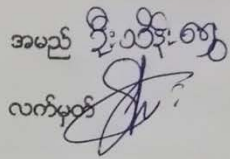 အမည် ဦးသိန်းရွှေ
လက်မှတ်